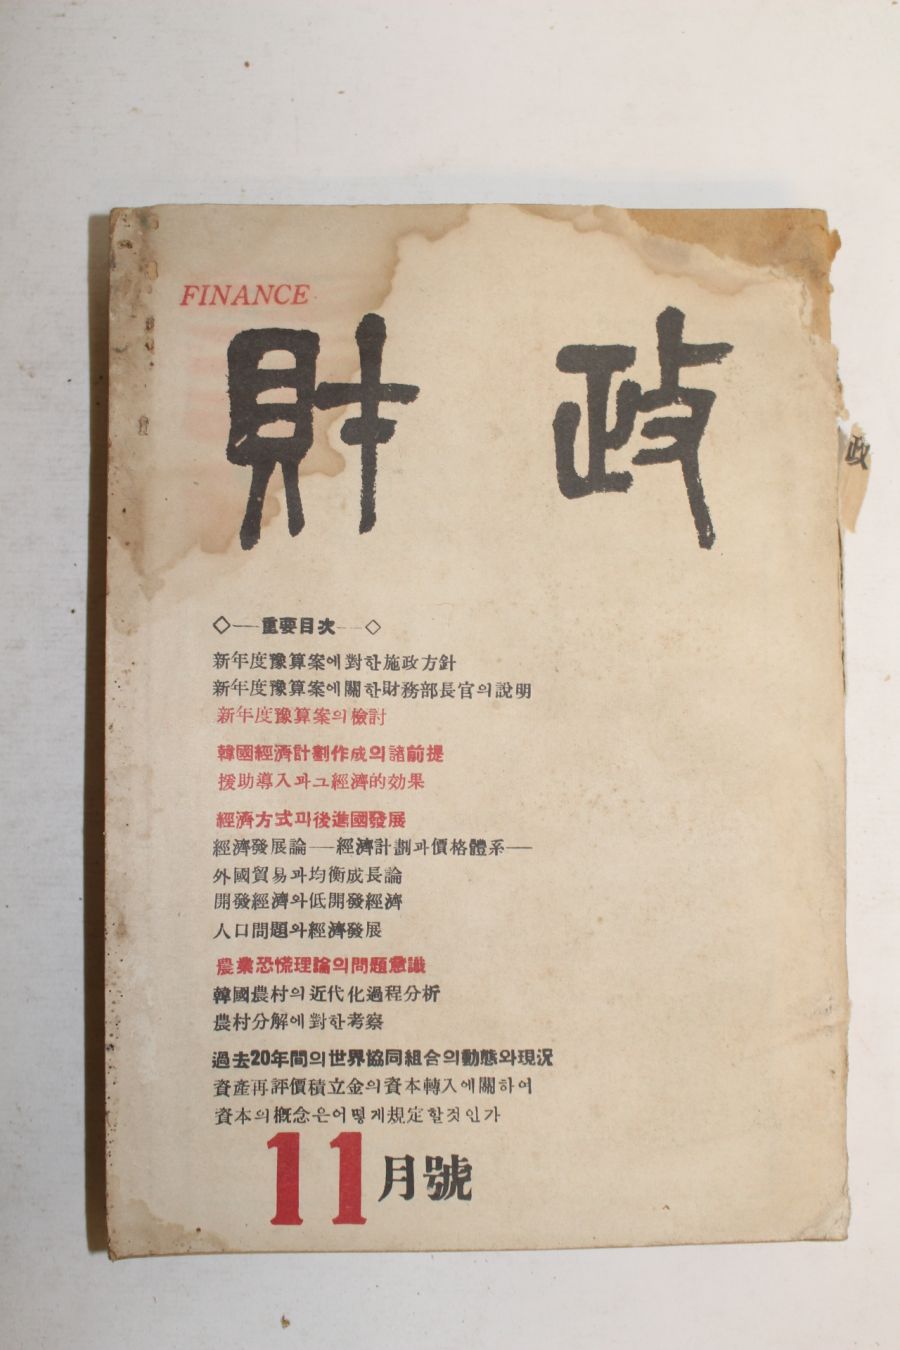 FINANCE
財政
政
◇——重要目次——◇
新年度豫算案에對한施政方針
新年度豫算案에關한財務部長官의說明
新年度豫算案의檢討
韓國經濟計劃作成의諸前提
援助導入과그經濟的効果
經濟方式과後進國發展
經濟發展論——經濟計劃과價格體系——
外國貿易과均衡成長論
開發經濟와低開發經濟
人口問題와經濟發展
農業恐慌理論의問題意識
韓國農村의近代化過程分析
農村分解에對한考察
過去20年間의世界協同組合의動態와現況
資產再評價積立金의資本轉入에關하여
資本의槪念은어떻게規定할것인가
11月號